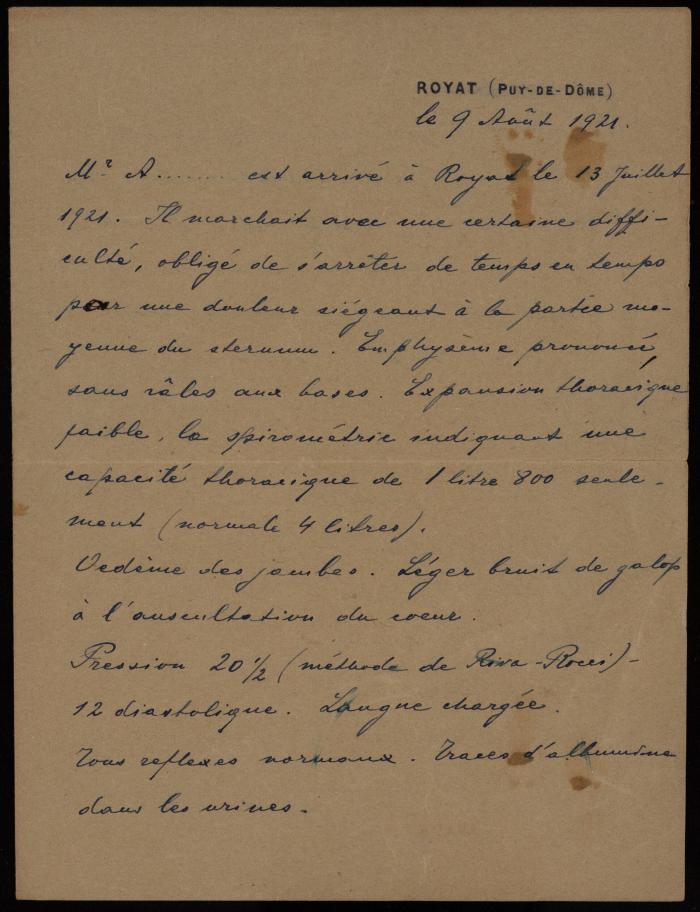 ROYAT (PUY-DE-DÔME)
le 9 Août 1921.
Mr A....... est arrivé à Royat le 13 Juillet
1921. Il marchait avec une certaine diffi-
culté, obligé de s'arrêter de temps en temps
par une douleur siégeant à la partie mo-
yenne du sternum. Emphysème prononcé,
sans râles aux bases. Expansion thoracique
faible, la spirométrie indiquant une
capacité thoracique de 1 litre 800 seule-
ment (normale 4 litres).
Oedème des jambes. Léger bruit de galop
à l'auscultation du coeur.
Pression 20 1/2 (méthode de Riva-Rocci)-
12 diastolique. Langue chargée.
Tous reflexes normaux. Traces d'albumine
dans les urines.